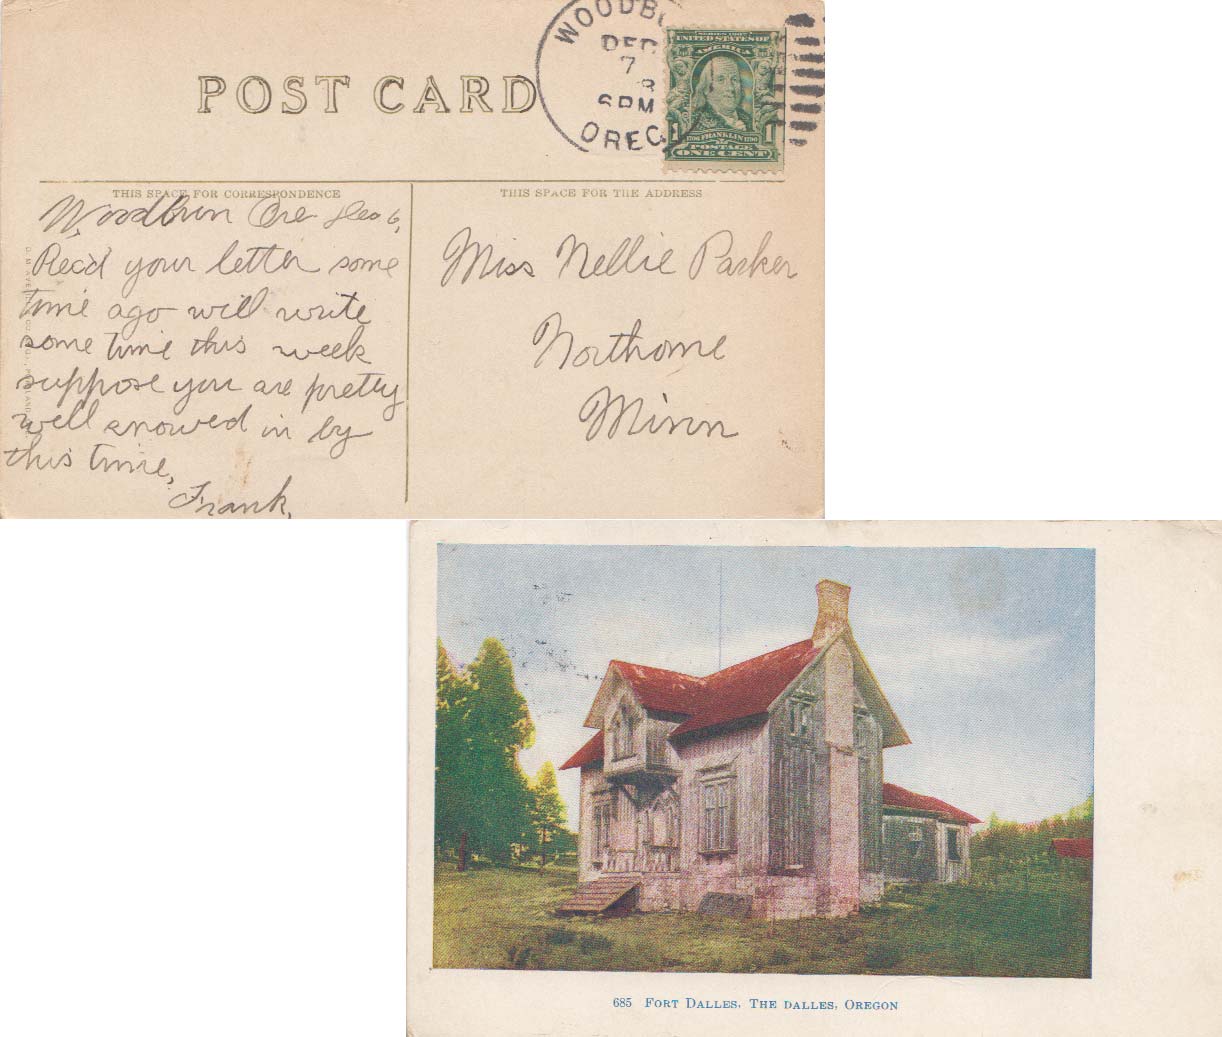 POST CARD
WOODBU
DEC
7
6 PM
OREG
SERIES 1902
UNITED STATES OF
AMERICA
1 1790 FRANKLIN 1790 1
POSTAGE
ONE CENT
THIS SPACE FOR CORRESPONDENCE
Woodburn Ore Dec 6,
Rec'd your letter some
time ago will write
some time this week
suppose you are pretty
well snowed in by
this time,
Frank,
THIS SPACE FOR THE ADDRESS
Miss Nellie Parker
Northome
Minn
685 FORT DALLES, THE DALLES, OREGON